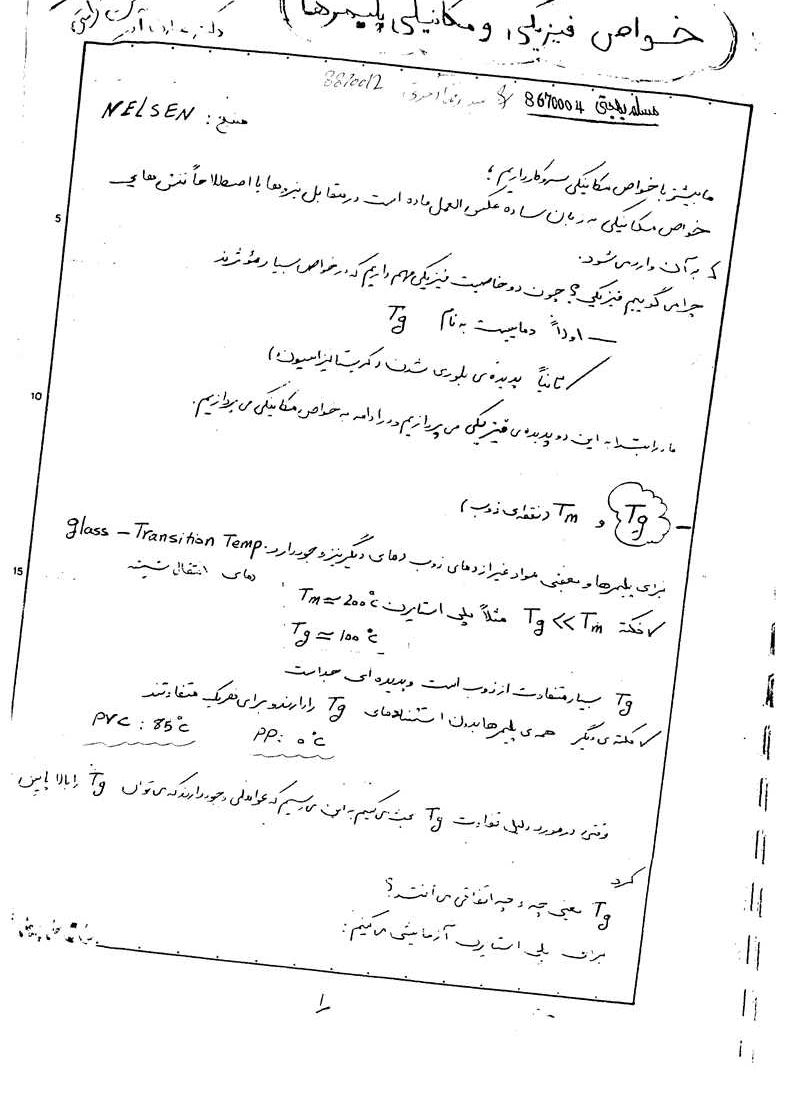 (خواص فیزیکی و مکانیکی پلیمرها)
دکتر
8670004 8820012
منبع : NELSEN
ما بیشتر با خواص مکانیکی سروکار داریم ؛
خواص مکانیکی به زبان ساده عکس العمل ماده است در مقابل نیروها یا اصطلاحاً تنش هایی
5
که به آن وارد می شود.
چرا می گوییم فیزیکی؟ چون دو خاصیت فیزیکی مهم داریم که در خواص بسیار مؤثرند
— اولاً دماییست به نام Tg
ثانیاً پدیده ی بلوری شدن (کریستالیزاسیون)
10
ما در ابتدا به این دو پدیده ی فیزیکی می پردازیم و در ادامه به خواص مکانیکی می پردازیم.
– Tg و Tm (نقطه ی ذوب)
برای پلیمرها و بعضی مواد غیر از دمای ذوب دمای دیگر نیز وجود دارد. glass – Transition Temp.
دمای انتقال شیشه
15
نکته Tg << Tm مثلاً پلی استایرن Tm ≈ 200°c
Tg ≈ 100°c
Tg بسیار متفاوت از ذوب است و پدیده ای جداست
نکته ی دیگر همه ی پلیمرها بدون استثناء دمای Tg را دارند و برای هر یک متفاوتند
PP: 0°c PVC : 85°c
وقتی در مورد دلیل تفاوت Tg بحث می کنیم به این می رسیم که عواملی وجود دارند که می توان Tg را بالا پایین
کرد
Tg یعنی چه و چه اتفاقی می افتد؟
برای پلی استایرن آزمایشی می کنیم :
1